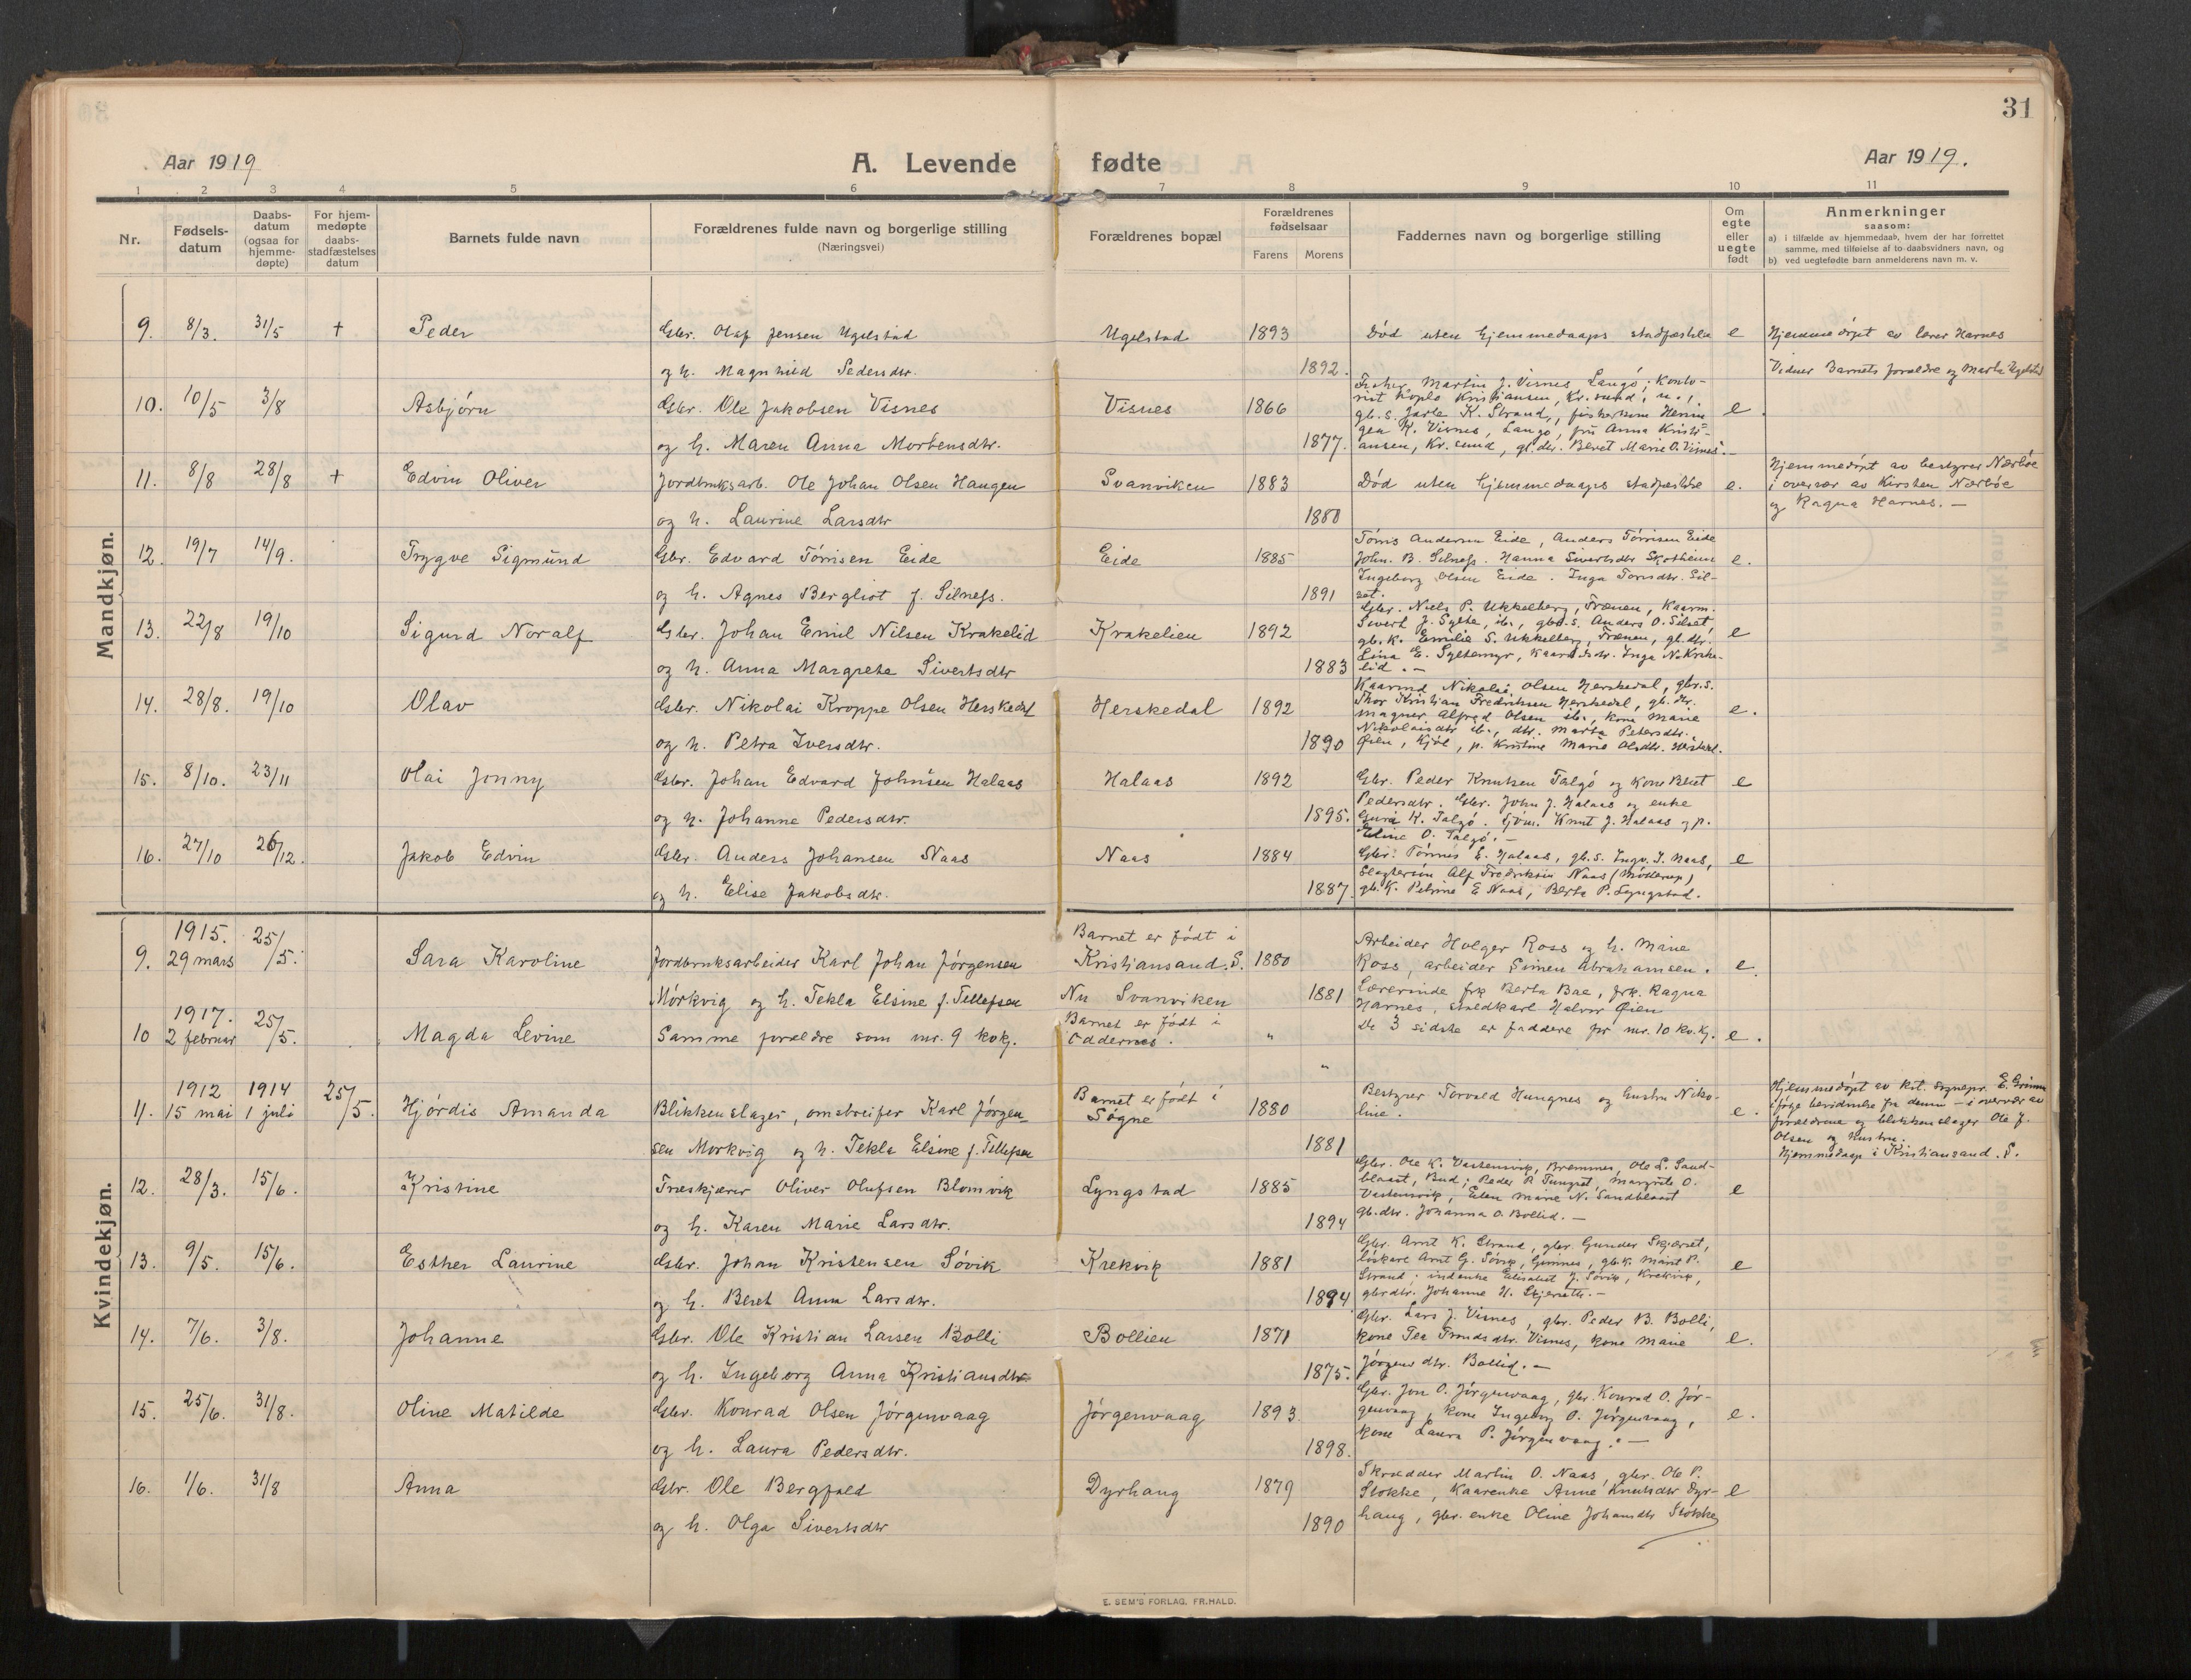 31
Aar 1919
A. Levende fødte
Aar 1919.
1 2 3 4 5 6 7 8 9 10 11
Nr.
Fødsels-
datum
Daabs-
datum
(ogsaa for
hjemme-
døpte)
For hjem-
medøpte
daabs-
stadfæstelses
datum
Barnets fulde navn
Forældrenes fulde navn og borgerlige stilling
(Næringsvei)
Forældrenes bopæl
Forældrenes
fødselsaar
Farens Morens
Faddernes navn og borgerlige stilling
Om
egte
eller
uegte
født
Anmerkninger
saasom:
a) i tilfælde av hjemmedaab, hvem der har forrettet
samme, med tilføielse af to daabsvidners navn, og
b) ved uegtefødte barn anmelderens navn m. v.
Mandkjøn.
9. 8/3. 31/5 + Peder Gbr. Olaf Jensen Ugelstad Ugelstad 1893 Død uten hjemmedaaps e Hjemmedøpt av lærer Harnes
og h. Magnhild Pedersdtr. 1892. Vidner Barnets forældre og Marta Ugelstad
10. 10/5 3/8 Asbjørn Gbr. Ole Jakobsen Visnes Visnes 1866 e.
Martin J. Visnes, Langö; Konto-
rist Kristiansen, Kr.sund,
gb.s. Jarle K. Strand,
K. Visnes, Langö, fru Anna Kristi-
og h. Maren Anna Mortensdtr. 1877. ansen, Kr.sund, gb.dtr. Beret Marie O. Visnes.
11. 8/8 28/8 + Edvin Oliver Jordbruksarb. Ole Johan Olsen Haugen Svanviken 1883 Død uten hjemmedaaps e.
Hjemmedøpt av bestyrer Nærbøe
i overvær av Kirsten Nærbøe
og Ragna Harnes. —
og h. Laurine Larsdtr 1880
12. 19/7 14/9. Trygve Sigmund Gbr. Edvard Tørrisen Eide Eide 1885 e.
Anders Tørrisen Eide
John. B. Silness. Hanna Sivertsdtr Skotheim
Ingeborg Olsen Eide. Inga Sil-
og h. Agnes Bergliot f. Silness. 1891 set.
13. 22/8 19/10 Sigurd Noralf Gbr. Johan Emil Nilsen Krakelid Krakelien 1892 e
Gbr. Niels P. Ukkelberg, Frænen, Kaarm.
Sivert J. Sylte, ib., gbr.s. Anders O. Silset,
gb.k. Emilie S. Ukkelberg, Frænen, gb.dtr.
Lina E. Syltemyr, Inga N. Krake-
og h. Anna Margrete Sivertsdtr 1883 lid. —
14. 28/8. 19/10 Olav Gbr. Nikolai Kroppe Olsen Herskedal Herskedal 1892 e.
Kaarmd Nikolai Olsen Herskedal, gbr.s.
Thor Kristian Fredriksen Herskedal,
Magner Alfred Olsen ib., kone Marie
Nikolaisdtr ib., dtr. Marta Petersdtr.
og h. Petra Iversdtr. 1890 Øien, p. Kristine Marie Olsdtr.
15. 8/10. 23/11 Olai Jonny Gbr. Johan Edvard Johnsen Halaas Halaas 1892 Gbr. Peder Knutsen Talgö og kone Beret e
Pedersdtr. Gbr. John J. Halaas og enke
og h. Johanne Pedersdtr. 1895. Guri K. Talgö. Knut J. Halaas og p.
Eline O. Talgö. —
16. 27/10 26/12. Jakob Edvin Gbr. Anders Johansen Naas Naas 1884 Gbr. Tønnes E. Halaas, gb.s. Ingv. J. Naas, e
Alf Fredriksen Naas
og h. Elise Jakobsdtr. 1887. gb.k. Petrine E Naas, Berta P. Lyngstad.
Kvindekjøn.
1915. Barnet er født i
9. 29 mars 25/5. Sara Karoline Jordbruksarbeider Karl Johan Jørgensen Kristiansand. S. 1880 Arbeider Holger Ross og h. Marie
Ross, arbeider Simen Abrahamsen. e.
Mørkvig og h. Tekla Elsine f. Tellefsen Nu Svanviken 1881 Lærerinde frk Berta Bae, frk. Ragna
Harnes, staldkarl Halvor Øien
1917. Barnet er født i
10 2 februar 25/5. Magda Levine Samme forældre som nr. 9 kvkj. Oddernes. " " De 3 sidste er faddere for nr. 10 kv.kj. e.
1912 1914
11. 15 mai 1 juli 25/5. Hjørdis Amanda Blikkenslager, omstreifer Karl Jørgen- Barnet er født i
Søgne 1880 Bestyrer Torvald Haugnes og hustru Niko-
line. e.
Hjemmedøpt av sognepr. E. Grimm
ifølge fra denne — i overvær av
forældrene og blikkenslager Ole J.
Olsen og hustru.
Hjemmedaap i Kristiansand. S.
sen Morkvig og h. Tekla Elsine f. Tellefsen 1881
12. 28/3. 15/6. Kristine Træskjærer Oliver Olufsen Blomvik Lyngstad 1885 e
Gbr. Ole K. Vastensvik, Bremsnes, Ole L. Sand-
blaast, Bud; Peder P. Tungset, Margrete O.
Vastensvik, Elen Marie N. Sandblaast
og h. Karen Marie Larsdtr. 1894 gb.dtr. Johanna O. Bollid. —
13. 9/5. 15/6. Esther Laurine Gbr. Johan Kristensen Søvik Krekvik 1881 e
Gbr. Arnt K. Strand, gbr. Gunder Skjerset,
løskarl Arnt G. Søvik, Gimnes, gb.k. Marit P.
Strand; Elisabet J. Søvik, Krekvik,
og h. Beret Anna Larsdtr. 1894. gbrdtr. Johanne H. —
14. 7/6. 3/8. Johanne Gbr. Ole Kristian Larsen Bolli Bollien 1871 e.
Gbr. Lars J. Visnes, gbr. Peder B. Bolli,
kone Tea Visnes, kone Marie
og h. Ingeborg Anna Kristiansdtr 1875. Jørgensdtr. Bollid. —
15. 25/6. 31/8. Oline Matilde Gbr. Konrad Olsen Jørgenvaag Jørgenvaag 1893 e.
Gbr. Jon O. Jørgenvaag, gbr. Konrad O. Jør-
genvaag, kone Ingeborg O. Jørgenvaag,
og h. Laura Pedersdtr. 1898. kone Laura P. Jørgenvaag. —
16. 1/6. 31/8 Anna Gbr. Ole Bergfald Dyrhaug 1879 Skrædder Martin O. Naas, gbr. Ole P.
Stokke, Kaarenke Anne Knutsdtr Dyr- e
og h. Olga Sivertsdtr 1890 haug, gbr. enke Oline Johansdtr Stokke
E. SEM'S FORLAG, FR.HALD.